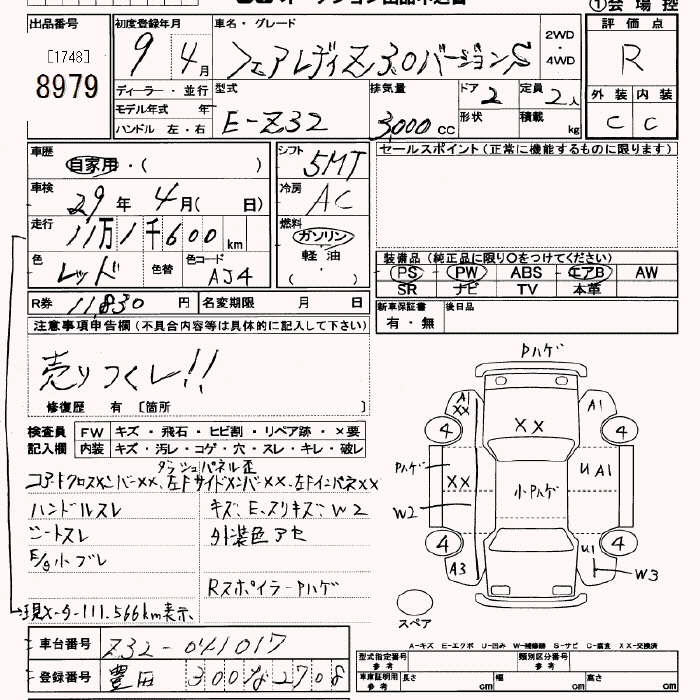 ①会場控
出品番号
[1748]
8979
初度登録年月
9 4月
車名・グレード
フェアレディZ 3.0バージョンS
2WD
・
4WD
評価点
R
ディーラー・並行
モデル年式 年
ハンドル 左・右
型式
E-Z32
排気量
3,000cc
ドア
2
形状
定員
2人
積載
kg
外装 内装
C C
車歴
自家用・( )
シフト
5MT
セールスポイント(正常に機能するものに限ります)
車検
29年 4月( 日)
冷房
AC
走行
11万1千600km
燃料
ガソリン
軽油
( )
色
レッド
色替
色コード
AJ4
装備品(純正品に限り○をつけてください)
PS PW ABS エアB AW
SR ナビ TV 本革
R券 11,830円
名変期限 月 日
新車保証書
有・無
後日品
注意事項申告欄(不具合内容等は具体的に記入して下さい)
売りつくし!!
修復歴 有 [箇所 ]
検査員
記入欄
FW キズ・飛石・ヒビ割・リペア跡・×要
内装 キズ・汚レ・コゲ・穴・スレ・キレ・破レ
ダッシュパネル歪
コアトクロスメンバーXX、左Fサイドメンバー××、左Fインパネ××
ハンドルスレ
キズ、E、スリキズ、W2
シートスレ
外装色アセ
E/g小ブレ
RスポイラーPハゲ
現メーター111,566km表示
Pハゲ
A1
XX
XX
A1
4
4
Pハゲ
XX
小Pハゲ
UA1
W2
4
4
A3
U1
W3
スペア
A-キズ E-エクボ U-凹み W-補修跡 S-サビ C-腐食 XX-交換済
車台番号
Z32-041017
登録番号
豊田 300な2708
型式指定番号
参考
類別区分番号
参考
車庫証明用
参考
長さ
cm
幅
cm
高さ
cm